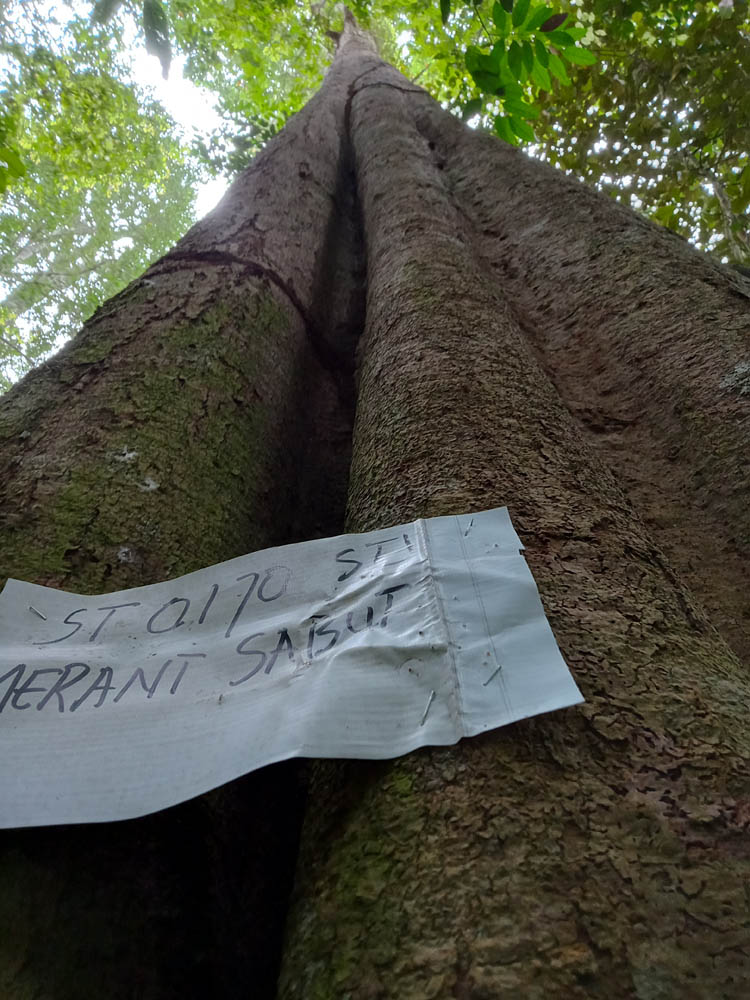 ST 0170 ST1
MERANT SABUT